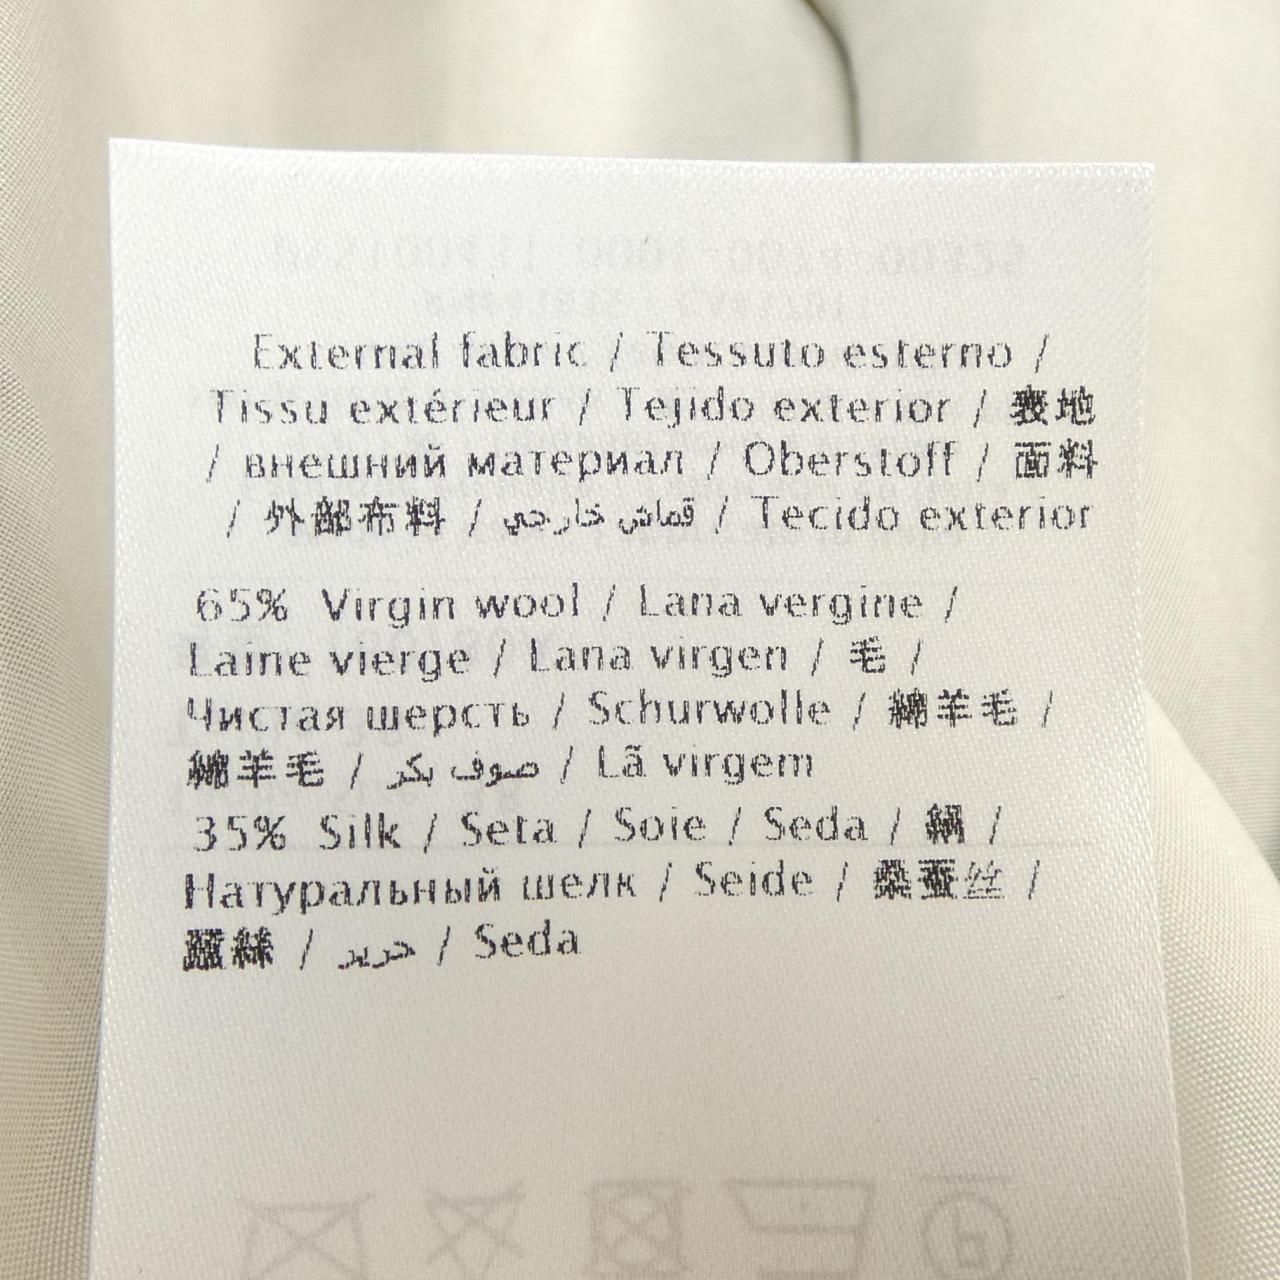 External fabric / Tessuto esterno /
Tissu extérieur / Tejido exterior / 表地
/ внешний материал / Oberstoff / 面料
/ 外部布料 / قماش خارجي / Tecido exterior
65% Virgin wool / Lana vergine /
Laine vierge / Lana virgen / 毛 /
Чистая шерсть / Schurwolle / 綿羊毛 /
綿羊毛 / صوف بكر / Lã virgem
35% Silk / Seta / Soie / Seda / 絹 /
Натуральный шелк / Seide / 桑蚕丝 /
蠶絲 / حرير / Seda